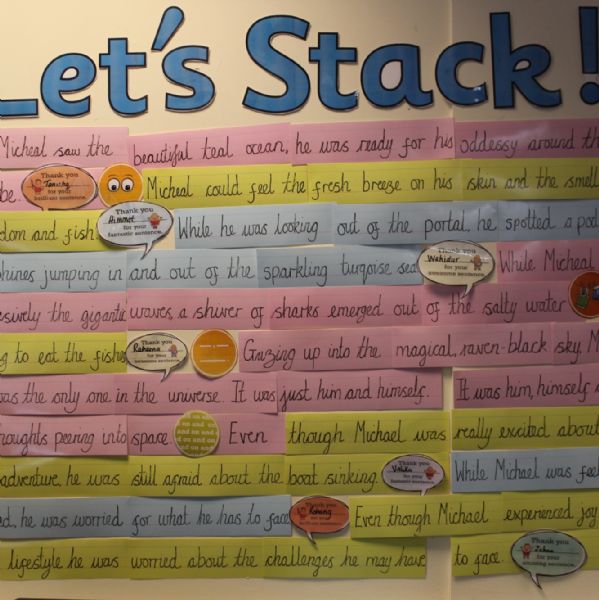 Let's Stack!
Micheal saw the beautiful teal ocean, he was ready for his oddessy around th
be. Thank you for your brilliant sentence. Micheal could feel the fresh breeze on his skin and the smell
dom and fish! Thank you Himmat for your fantastic sentence. While he was looking out of the portal, he spotted a pod
hines jumping in and out of the sparkling turqoise sea Thank you Wahidur for your awesome sentence. While Micheal
esively the gigantic waves, a shiver of sharks emerged out of the salty water
g to eat the fishes Thank you Raheema for your awesome sentence. Grazing up into the magical, raven-black sky. M
was the only one in the universe. It was just him and himself. It was him, himself a
thoughts peering into space Even though Michael was really excited about
adventure, he was still afraid about the boat sinking. Thank you for your fantastic sentence. While Michael was feel
ed, he was worried for what he has to face. Thank you for your brilliant sentence. Even though Michael experienced joy
lifestyle he was worried about the challenges he may have to face. Thank you for your amazing sentence.